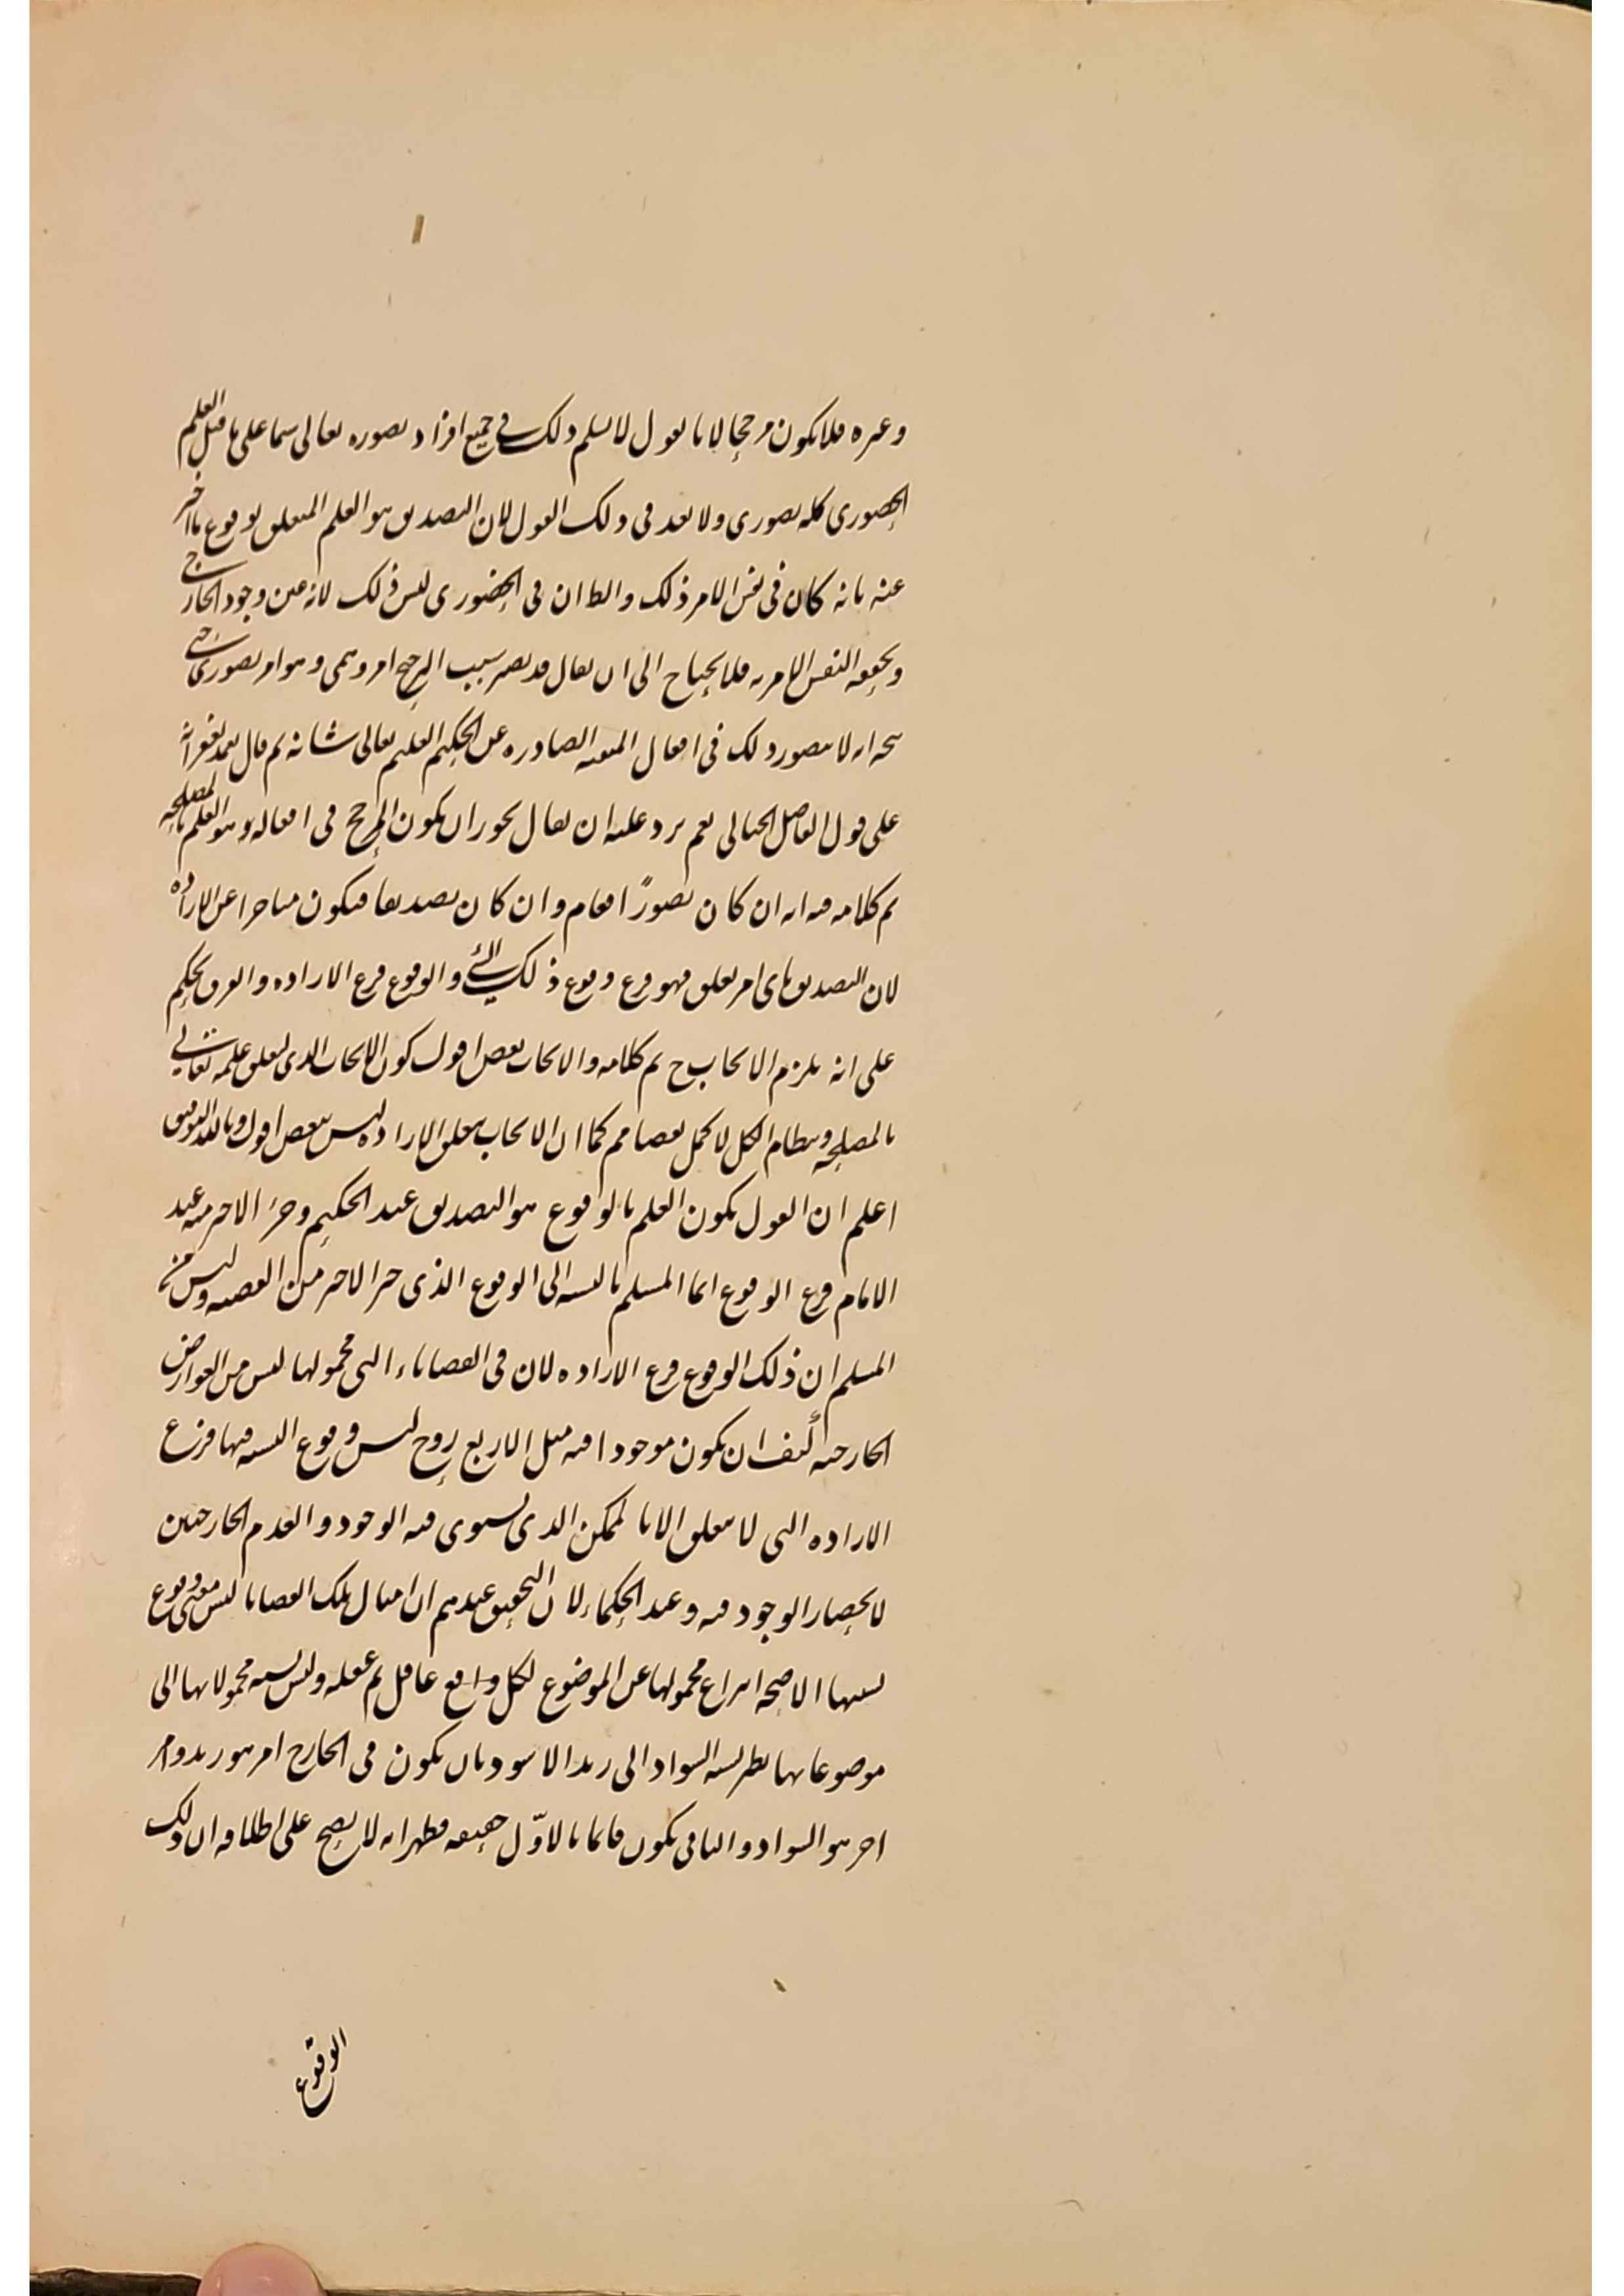 وغيره فلا يكون مرجحا لانا نقول لا نسلم ذلك في جميع افراد تصوره تعالى سيما على ما قيل العلم
الحضورى كله تصورى ولا بعد فى ذلك القول لان التصديق هو العلم المتعلق بوقوع ما اخبر
عنه بانه كان فى نفس الامر ذلك والظ ان فى الحضورى ليس ذلك لانه عين وجود الخارجي
النفس الامريه فلا يحتاج الى ان يقال قد يصير سبب الترجيح امر وهمى وهو امر تصورى حتى
انه لا يتصور ذلك فى افعال المتقنه الصادره عن الحكيم العليم تعالى شانه ثم قال
على قول الفاضل الخيالى نعم يرد عليه ان يقال يجوز ان يكون المرجح فى افعاله هو العلم بالمصلحه
تم كلامه فيه انه ان كان تصورًا فعام وان كان تصديقا فيكون متاخرا عن الاراده
لان التصديق باى امر تعلق فهو فرع وقوع ذلك الشئ والوقوع فرع الاراده والفرق تحكم
على انه يلزم الايجاب ح تم كلامه والايجاب نقص اقول كون الايجاب الذى لتعلق علمه تعالى
بالمصلحه ونظام الكل لاكمل نقصا مم كما ان الايجاب بتعلق الاراده ليس بنقص اقول وبالله التوفيق
اعلم ان القول بكون العلم بالوقوع هو التصديق عند الحكيم وجزء الاخير منه عند
الامام فرع الوقوع انما المسلم بالنسبه الى الوقوع الذى جزء الاخير من القضيه وليس من
المسلم ان ذلك الوقوع فرع الاراده لان فى القضاياء التى محمولها ليس من العوارض
الخارجيه كيف ان يكون موجودا فيه مثل الاربع زوج ليس وقوع النسبه فيها فرع
الاراده التى لا تتعلق الا بالممكن الذى يستوى فيه الوجود والعدم الخارجيين
لانحصار الوجود فيه وعند الحكماء لان التحقيق عندهم ان امثال تلك القضايا ليس معنى وقوع
نسبتها الا صحه انتزاع محمولها عن الموضوع لكل واقع عاقل ثم عقله وليس نسبه محمولاتها الى
موضوعاتها نظير نسبه السواد الى زيد الاسود بان يكون فى الخارج امر هو زيد وامر
اخر هو السواد والثانى يكون قائما بالاوّل حقيقه فظهر انه لا يصح على اطلاقه ان ذلك
الوقوع